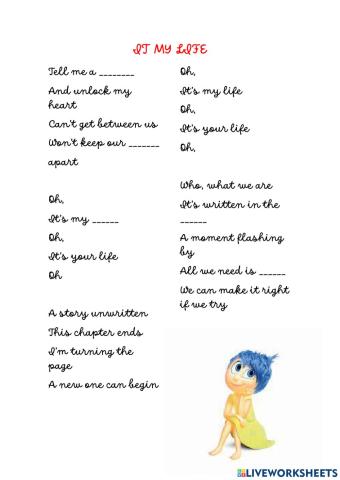 IT MY LIFE
Tell me a ________
And unlock my
heart
Can't get between us
Won't keep our _______
apart
Oh,
It's my ______
Oh,
It's your life
Oh
A story unwritten
This chapter ends
I'm turning the
page
A new one can begin
Oh,
It's my life
Oh,
It's your life
Oh,
Who, what we are
It's written in the
______
A moment flashing
by
All we need is ______
We can make it right
if we try
LIVEWORKSHEETS